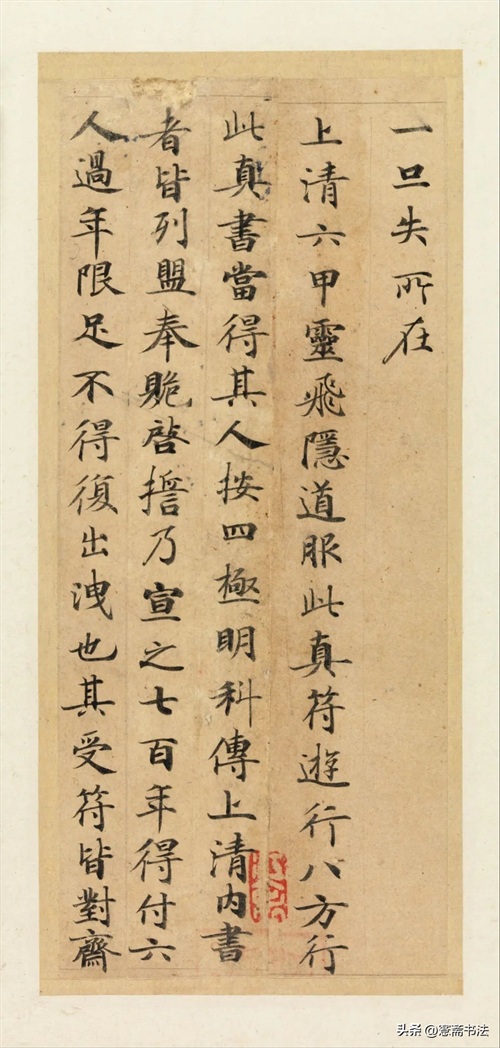 一旦失所在
上清六甲靈飛隱道服此真符遊行八方行
此真書當得其人按四極明科傳上清內書
者皆列盟奉貺啓誓乃宣之七百年得付六
人過年限足不得復出洩也其受符皆對齋
头条@憲斋书法